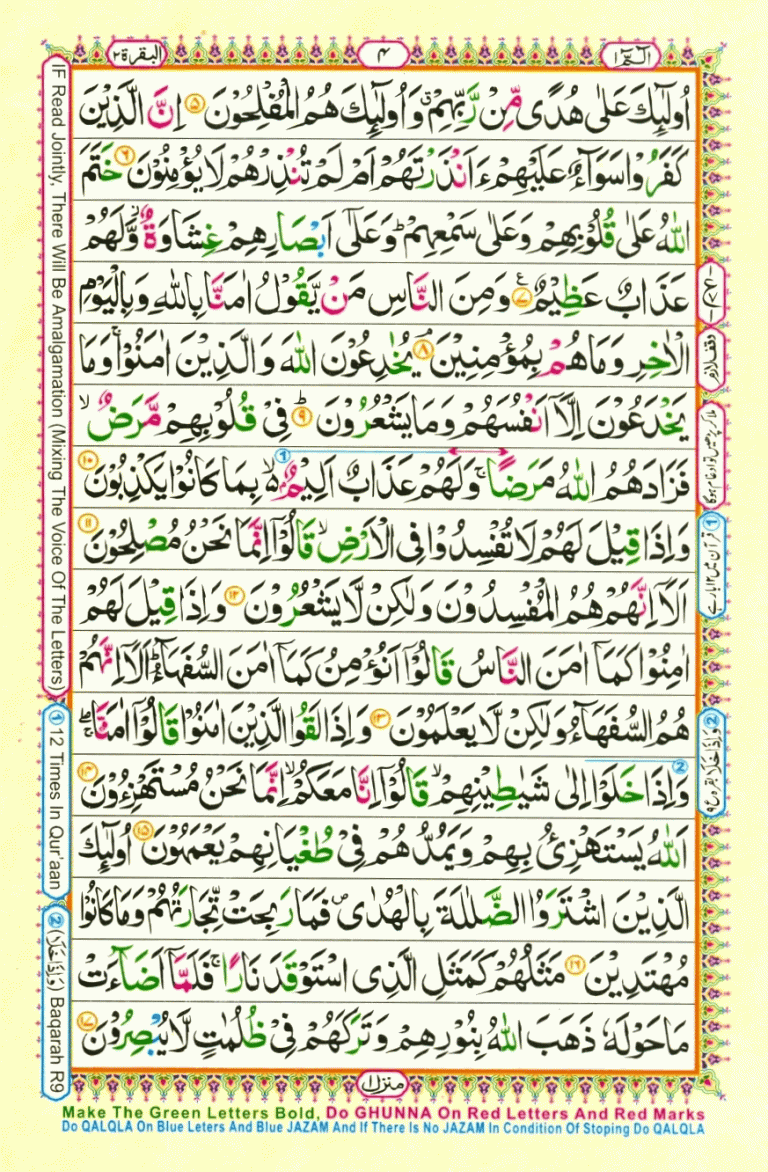 البقرة ٢
٤
الٓمّٓ ١
اُولٰٓئِكَ عَلٰى هُدًى مِّنْ رَّبِّهِمْ ۙ وَاُولٰٓئِكَ هُمُ الْمُفْلِحُوْنَ ۵ اِنَّ الَّذِيْنَ
كَفَرُوْا سَوَآءٌ عَلَيْهِمْ ءَاَنْذَرْتَهُمْ اَمْ لَمْ تُنْذِرْهُمْ لَا يُؤْمِنُوْنَ ۶ خَتَمَ
اللّٰهُ عَلٰى قُلُوْبِهِمْ وَعَلٰى سَمْعِهِمْ ؕ وَعَلٰٓى اَبْصَارِهِمْ غِشَاوَةٌ ؗ وَّلَهُمْ
عَذَابٌ عَظِيْمٌ ۷ ع وَمِنَ النَّاسِ مَنْ يَّقُوْلُ اٰمَنَّا بِاللّٰهِ وَبِالْيَوْمِ
الْاٰخِرِ وَمَا هُمْ بِمُؤْمِنِيْنَ ۘ ۸ يُخٰدِعُوْنَ اللّٰهَ وَالَّذِيْنَ اٰمَنُوْا ۚ وَمَا
يَخْدَعُوْنَ اِلَّآ اَنْفُسَهُمْ وَمَا يَشْعُرُوْنَ ؕ ۹ فِيْ قُلُوْبِهِمْ مَّرَضٌ ۙ
فَزَادَهُمُ اللّٰهُ مَرَضًا ۚ وَلَهُمْ عَذَابٌ اَلِيْمٌۢ ۙ بِمَا كَانُوْا يَكْذِبُوْنَ ۱۰
وَاِذَا قِيْلَ لَهُمْ لَا تُفْسِدُوْا فِى الْاَرْضِ ۙ قَالُوْٓا اِنَّمَا نَحْنُ مُصْلِحُوْنَ ۱۱
اَلَآ اِنَّهُمْ هُمُ الْمُفْسِدُوْنَ وَلٰكِنْ لَّا يَشْعُرُوْنَ ۱۲ وَاِذَا قِيْلَ لَهُمْ
اٰمِنُوْا كَمَآ اٰمَنَ النَّاسُ قَالُوْٓا اَنُؤْمِنُ كَمَآ اٰمَنَ السُّفَهَآءُ ؕ اَلَآ اِنَّهُمْ
هُمُ السُّفَهَآءُ وَلٰكِنْ لَّا يَعْلَمُوْنَ ۱۳ وَاِذَا لَقُوا الَّذِيْنَ اٰمَنُوْا قَالُوْٓا اٰمَنَّا ۖۚ
وَاِذَا خَلَوْا اِلٰى شَيٰطِيْنِهِمْ ۙ قَالُوْٓا اِنَّا مَعَكُمْ ۙ اِنَّمَا نَحْنُ مُسْتَهْزِءُوْنَ ۱۴
اَللّٰهُ يَسْتَهْزِئُ بِهِمْ وَيَمُدُّهُمْ فِيْ طُغْيَانِهِمْ يَعْمَهُوْنَ ۱۵ اُولٰٓئِكَ
الَّذِيْنَ اشْتَرَوُا الضَّلٰلَةَ بِالْهُدٰى ۪ فَمَا رَبِحَتْ تِّجَارَتُهُمْ وَمَا كَانُوْا
مُهْتَدِيْنَ ۱۶ مَثَلُهُمْ كَمَثَلِ الَّذِى اسْتَوْقَدَ نَارًا ۚ فَلَمَّآ اَضَآءَتْ
مَا حَوْلَهٗ ذَهَبَ اللّٰهُ بِنُوْرِهِمْ وَتَرَكَهُمْ فِيْ ظُلُمٰتٍ لَّا يُبْصِرُوْنَ ۱۷
وقف لازم
① قرآن میں ١٢ بار ہے
② وَاِذَا خَلَا بقرہ ع ۹
IF Read Jointly, There Will Be Amalgamation (Mixing The Voice Of The Letters)
① 12 Times In Qur'aan
② (وَاِذَا خَلَا) Baqarah R9
منزل ١
Make The Green Letters Bold, Do GHUNNA On Red Letters And Red Marks
Do QALQLA On Blue Leters And Blue JAZAM And If There Is No JAZAM In Condition Of Stoping Do QALQLA